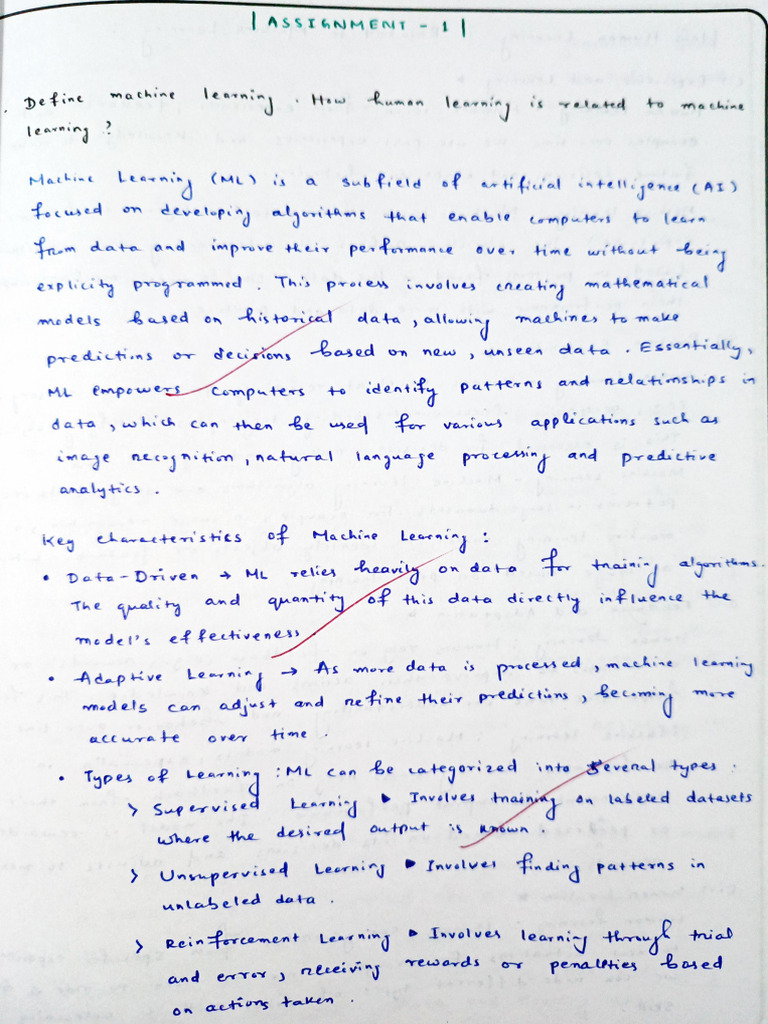 | ASSIGNMENT - 1 |
. Define machine learning. How human learning is related to machine
learning ?
Machine Learning (ML) is a subfield of artificial intelligence (AI)
focused on developing algorithms that enable computers to learn
from data and improve their performance over time without being
explicity programmed. This process involves creating mathematical
models based on historical data, allowing machines to make
predictions or decisions based on new, unseen data. Essentially,
ML empowers computers to identify patterns and relationships in
data, which can then be used for various applications such as
image recognition, natural language processing and predictive
analytics.
Key characteristics of Machine Learning :
• Data-Driven → ML relies heavily on data for training algorithms.
The quality and quantity of this data directly influence the
model's effectiveness.
• Adaptive Learning → As more data is processed, machine learning
models can adjust and refine their predictions, becoming more
accurate over time.
• Types of Learning : ML can be categorized into several types.
> Supervised Learning ▶ Involves training on labeled datasets
where the desired output is known.
> Unsupervised Learning ▶ Involves finding patterns in
unlabeled data.
> Reinforcement Learning ▶ Involves learning through trial
and error, receiving rewards or penalities based
on actions taken.